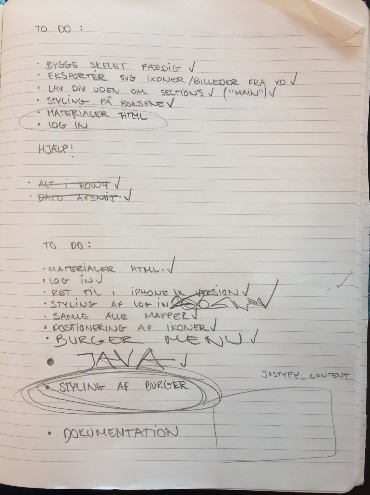 TO DO :
• BYGGE SKELET FÆRDIG ✓
• EKSPORTER SVG IKONER/BILLEDER FRA XD ✓
• LAV DIV UDEN OM SECTIONS ✓ ("MAIN") ✓
• STYLING PÅ BOKSENE ✓
• MATERIALER HTML
• LOG IN
HJÆLP!
• ALT I ✓
• DATO AFSNIT ✓
TO DO :
• MATERIALER HTML ✓
• LOG IN ✓
• RET TIL I IPHONE DESIGN ✓
• STYLING AF LOG IN ✓
• SAMLE ALLE MAPPER ✓
• POSITIONERING AF IKONER ✓
• BURGER MENU ✓
• JAVA ✓
JUSTYFY_CONTENT
• STYLING AF BURGER
• DOKUMENTATION